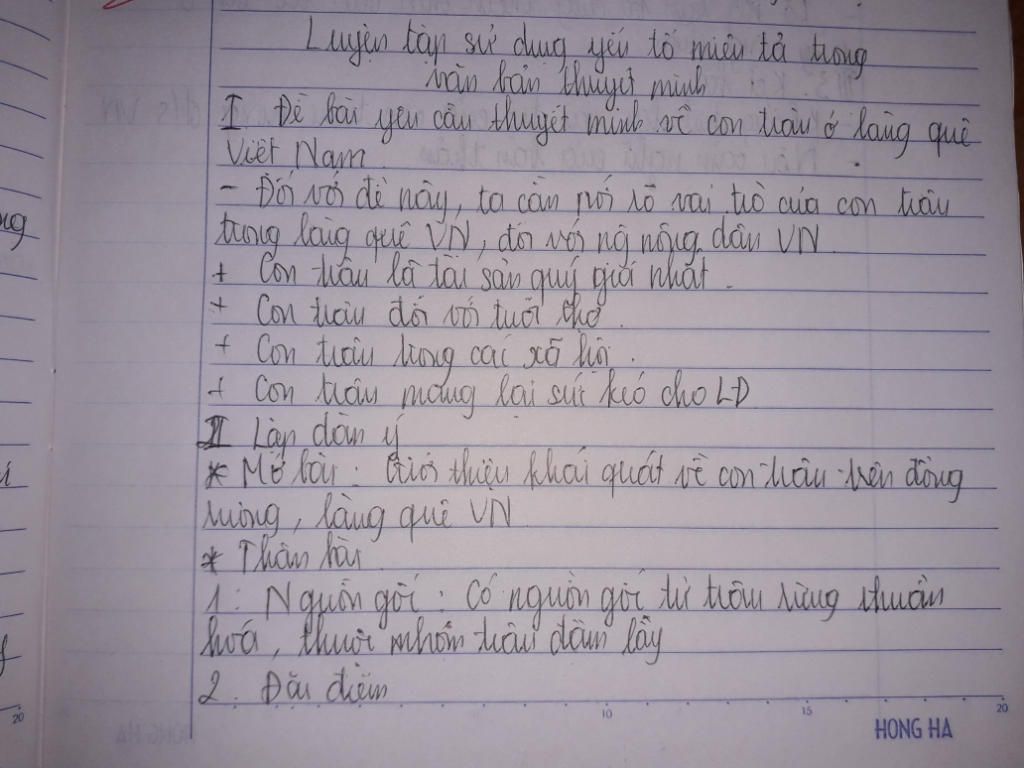 Luyện tập sử dụng yếu tố miêu tả trong
văn bản thuyết minh
I Đề bài yêu cầu thuyết minh về con trâu ở làng quê
Việt Nam
- Đối với đề này, ta cần nói rõ vai trò của con trâu
trong làng quê VN, đối với ng nông dân VN
+ Con trâu là tài sản quý giá nhất.
+ Con trâu đối với tuổi thơ.
+ Con trâu trong các xã hội.
+ Con trâu mang lại sức kéo cho LĐ
II Lập dàn ý
* Mở bài: Giới thiệu khái quát về con trâu trên đồng
ruộng, làng quê VN
* Thân bài
1: Nguồn gốc: Có nguồn gốc từ trâu rừng thuần
hoá, thuộc nhóm trâu đầm lầy
2. Đặc điểm
20
10
15
20
HONG HA